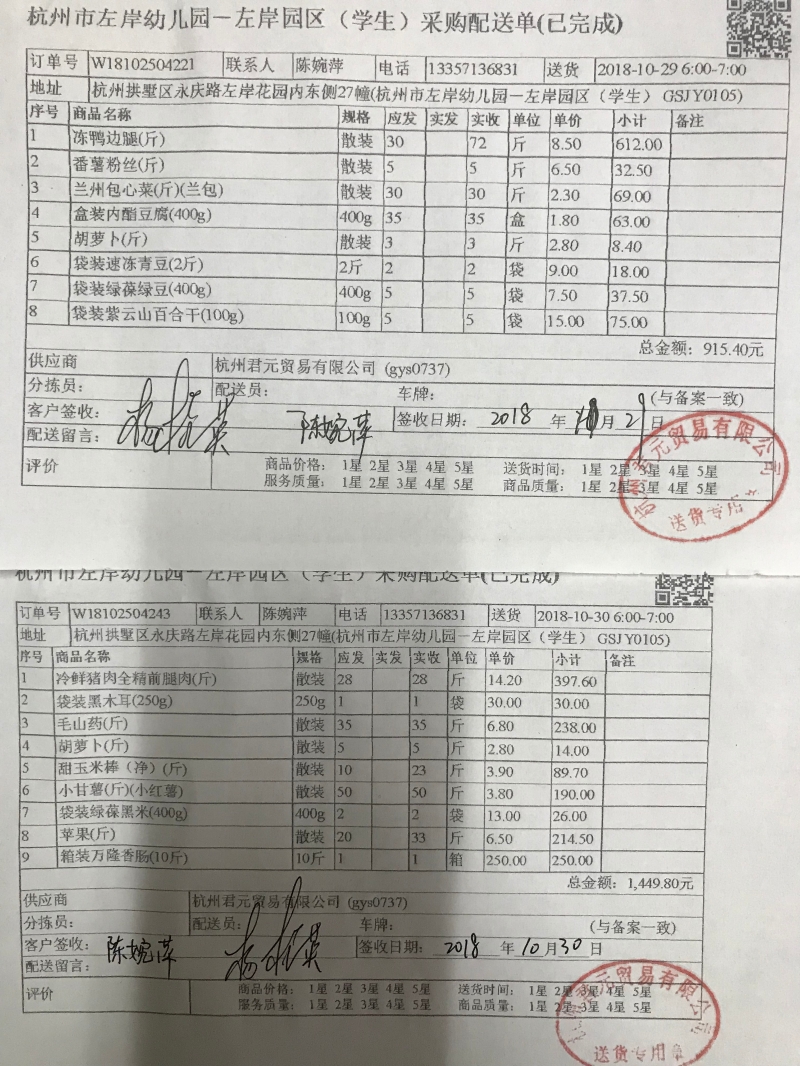 杭州市左岸幼儿园－左岸园区（学生）采购配送单(已完成)
订单号 W18102504221 联系人 陈婉萍 电话 13357136831 送货 2018-10-29 6:00-7:00
地址 杭州拱墅区永庆路左岸花园内东侧27幢(杭州市左岸幼儿园－左岸园区（学生）GSJY0105)
序号 商品名称 规格 应发 实发 实收 单位 单价 小计 备注
1 冻鸭边腿(斤) 散装 30 72 斤 8.50 612.00
2 番薯粉丝(斤) 散装 5 5 斤 6.50 32.50
3 兰州包心菜(斤)(兰包) 散装 30 30 斤 2.30 69.00
4 盒装内酯豆腐(400g) 400g 35 35 盒 1.80 63.00
5 胡萝卜(斤) 散装 3 3 斤 2.80 8.40
6 袋装速冻青豆(2斤) 2斤 2 2 袋 9.00 18.00
7 袋装绿葆绿豆(400g) 400g 5 5 袋 7.50 37.50
8 袋装紫云山百合干(100g) 100g 5 5 袋 15.00 75.00
总金额：915.40元
供应商 杭州君元贸易有限公司 (gys0737)
分拣员： 配送员： 车牌： (与备案一致)
客户签收： 陈婉萍 签收日期： 2018 年 10 月 29 日
配送留言：
评价 商品价格： 1星 2星 3星 4星 5星 送货时间： 1星 2星 3星 4星 5星
服务质量： 1星 2星 3星 4星 5星 商品质量： 1星 2星 3星 4星 5星
杭州君元贸易有限公司
送货专用章
杭州市左岸幼儿园－左岸园区（学生）采购配送单(已完成)
订单号 W18102504243 联系人 陈婉萍 电话 13357136831 送货 2018-10-30 6:00-7:00
地址 杭州拱墅区永庆路左岸花园内东侧27幢(杭州市左岸幼儿园－左岸园区（学生）GSJY0105)
序号 商品名称 规格 应发 实发 实收 单位 单价 小计 备注
1 冷鲜猪肉全精前腿肉(斤) 散装 28 28 斤 14.20 397.60
2 袋装黑木耳(250g) 250g 1 1 袋 30.00 30.00
3 毛山药(斤) 散装 35 35 斤 6.80 238.00
4 胡萝卜(斤) 散装 5 5 斤 2.80 14.00
5 甜玉米棒（净）(斤) 散装 10 23 斤 3.90 89.70
6 小甘薯(斤)(小红薯) 散装 50 50 斤 3.80 190.00
7 袋装绿葆黑米(400g) 400g 2 2 袋 13.00 26.00
8 苹果(斤) 散装 20 33 斤 6.50 214.50
9 箱装万隆香肠(10斤) 10斤 1 1 箱 250.00 250.00
总金额：1,449.80元
供应商 杭州君元贸易有限公司 (gys0737)
分拣员： 配送员： 车牌： (与备案一致)
客户签收： 陈婉萍 签收日期： 2018 年 10 月 30 日
配送留言：
评价 商品价格： 1星 2星 3星 4星 5星 送货时间： 1星 2星 3星 4星 5星
服务质量： 1星 2星 3星 4星 5星 商品质量： 1星 2星 3星 4星 5星
杭州君元贸易有限公司
送货专用章